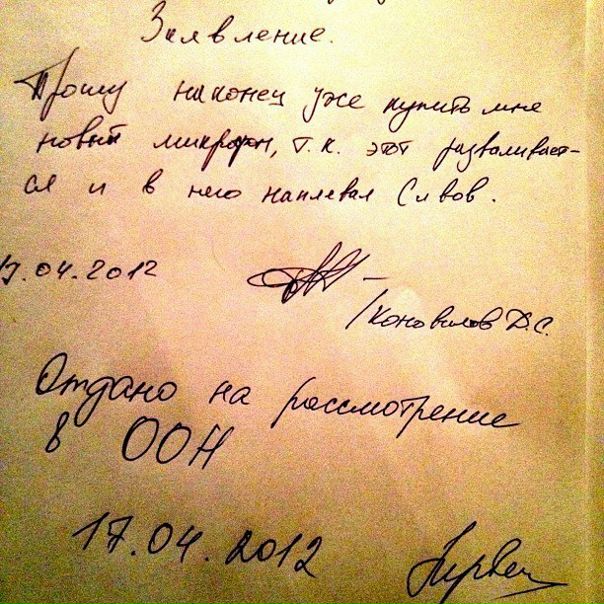 Заявление.
Прошу наконец уже купить мне
новый микрофон, т.к. этот разваливает-
ся и в него наплевал Слвов.
17.04.2012
/Коновалов Д.С.
Отдано на рассмотрение
в ООН
17.04.2012